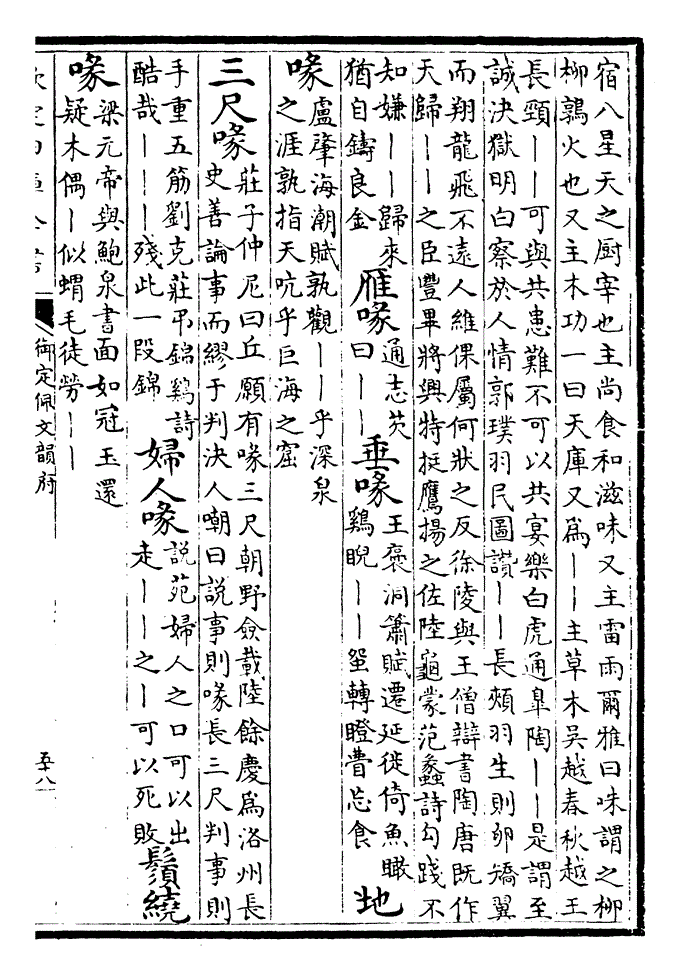 宿八星天之厨宰也主尚食和滋味又主雷雨爾雅曰咮謂之柳
柳鶉火也又主木功一曰天庫又爲丨丨主草木吳越春秋越王
長頸丨丨可與共患難不可以共宴樂白虎通臯陶丨丨是謂至
誠決獄明白察於人情郭璞羽民圖讃丨丨長頰羽生則卵矯翼
而翔龍飛不遠人維倮屬何狀之反徐陵與王僧辯書陶唐既作
天歸丨丨之臣豐畢將興特挺鷹揚之佐陸龜蒙范蠡詩勾踐不
知嫌丨丨歸來
猶自鑄良金
雁喙
通志芡
曰丨丨
垂喙
王褒洞簫賦遷延徙倚魚瞰
鷄睨丨丨蛩轉瞪瞢忘食
地
喙
盧肇海潮賦孰觀丨丨乎深泉
之涯孰指天吭乎巨海之窟
三尺喙
莊子仲尼曰丘願有喙三尺朝野僉載陸餘慶爲洛州長
史善論事而繆于判決人嘲曰説事則喙長三尺判事則
手重五筋劉克莊弔錦鷄詩
酷哉丨丨丨殘此一段錦
婦人喙
説苑婦人之口可以出
走丨丨之丨可以死敗
鬚繞
喙
梁元帝與鮑泉書面如冠玉還
疑木偶丨似蝟毛徒勞丨丨
御定佩文韻府
五十八